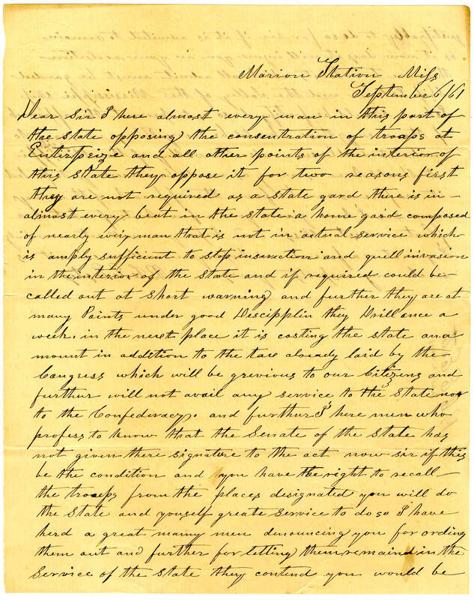 Marion Station Miss
September 6/61
Dear Sir I here almost every man in this part of
the state opposing the consentration of troops at
Enterprize and all other points of the interior of
this State they oppose it for two reasons first
they are not required as a state gard there is in
almost every beat in the state a home gard composed
of nearly evry man that is not in actual service which
is amply sufficient to stop insurection and quell invasion
in the interior of the State and if required could be
called out at Short warning and further they are at
many Points under good Discipplin they Drill once a
week, in the next place it is costing the state an a
mount in addition to the tax already laid by the
Congress which will be grevious to our Citizens and
further will not avail any service to the State nor
to the Confederacy. and further I here men who
profess to know that the Senate of the State has
not given there signature to the act now sir if this
be the condition and you have the right to recall
the troops from the places designated you will do
the State and yourself greate Service to do so I have
herd a great many men denouncing you for ording
them out and further for letting them remain in the
Service of the State they contend you would be